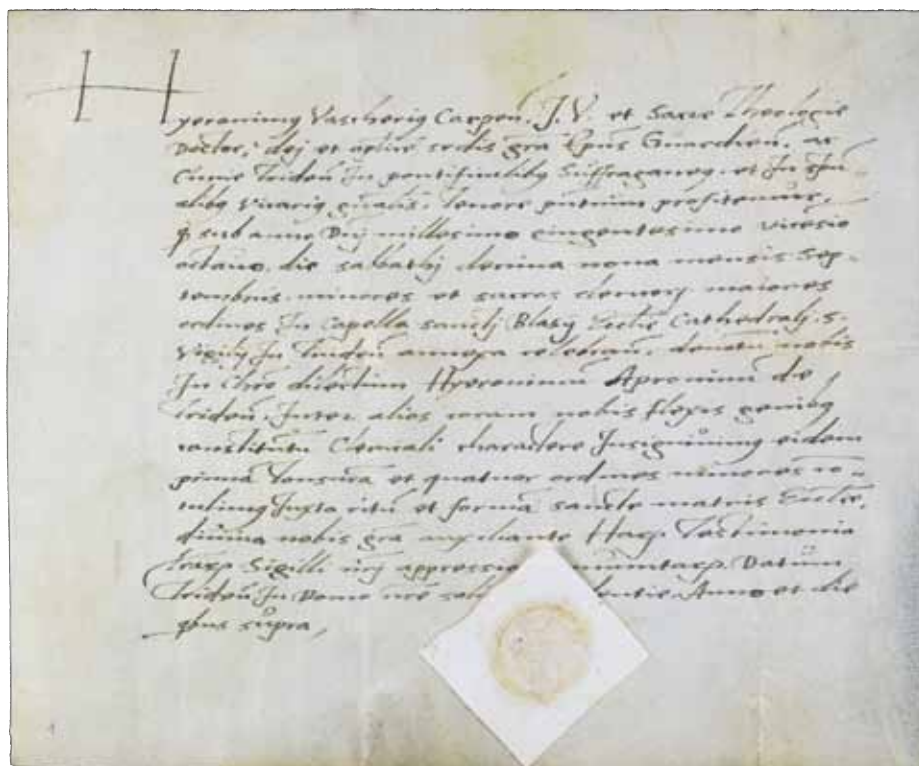 Hyeronimq Vascheriq Carpen. J. V. et Sacre Theologie
Doctor, dej et aplice sedis gra Epus Guardien. ac
Cume Triden In pontificalibq Suffraganeq. et In spu-
alibq Vicariq gnalis. Tenore pntium profitemur,
q sub anno Dnj millesimo qingentesimo vicesio
octavo. die sabbathj decima nona mensis Sep-
tembris minores et sacros clericorj maiores
ordines In Capella sanctj Blasij Eccle Cathedralj. S.
Vigilij In Triden annexa celebran. nobis
In Chro dilectum Hyeronimum Apronimum de
Triden. Inter alios coram nobis flexis genibq
constitutu Clericali charactere Insignivimq eidem
prima tonsura et quatuor ordines minores co-
tulimq Juxta ritu et forma sancte matris Eccle,
divina nobis gra auxiliante Harp Testimonia
lrarp Sigilli nrj appressio munitarp. Datum
Triden In Domo nre Anno et die
qbus supra,